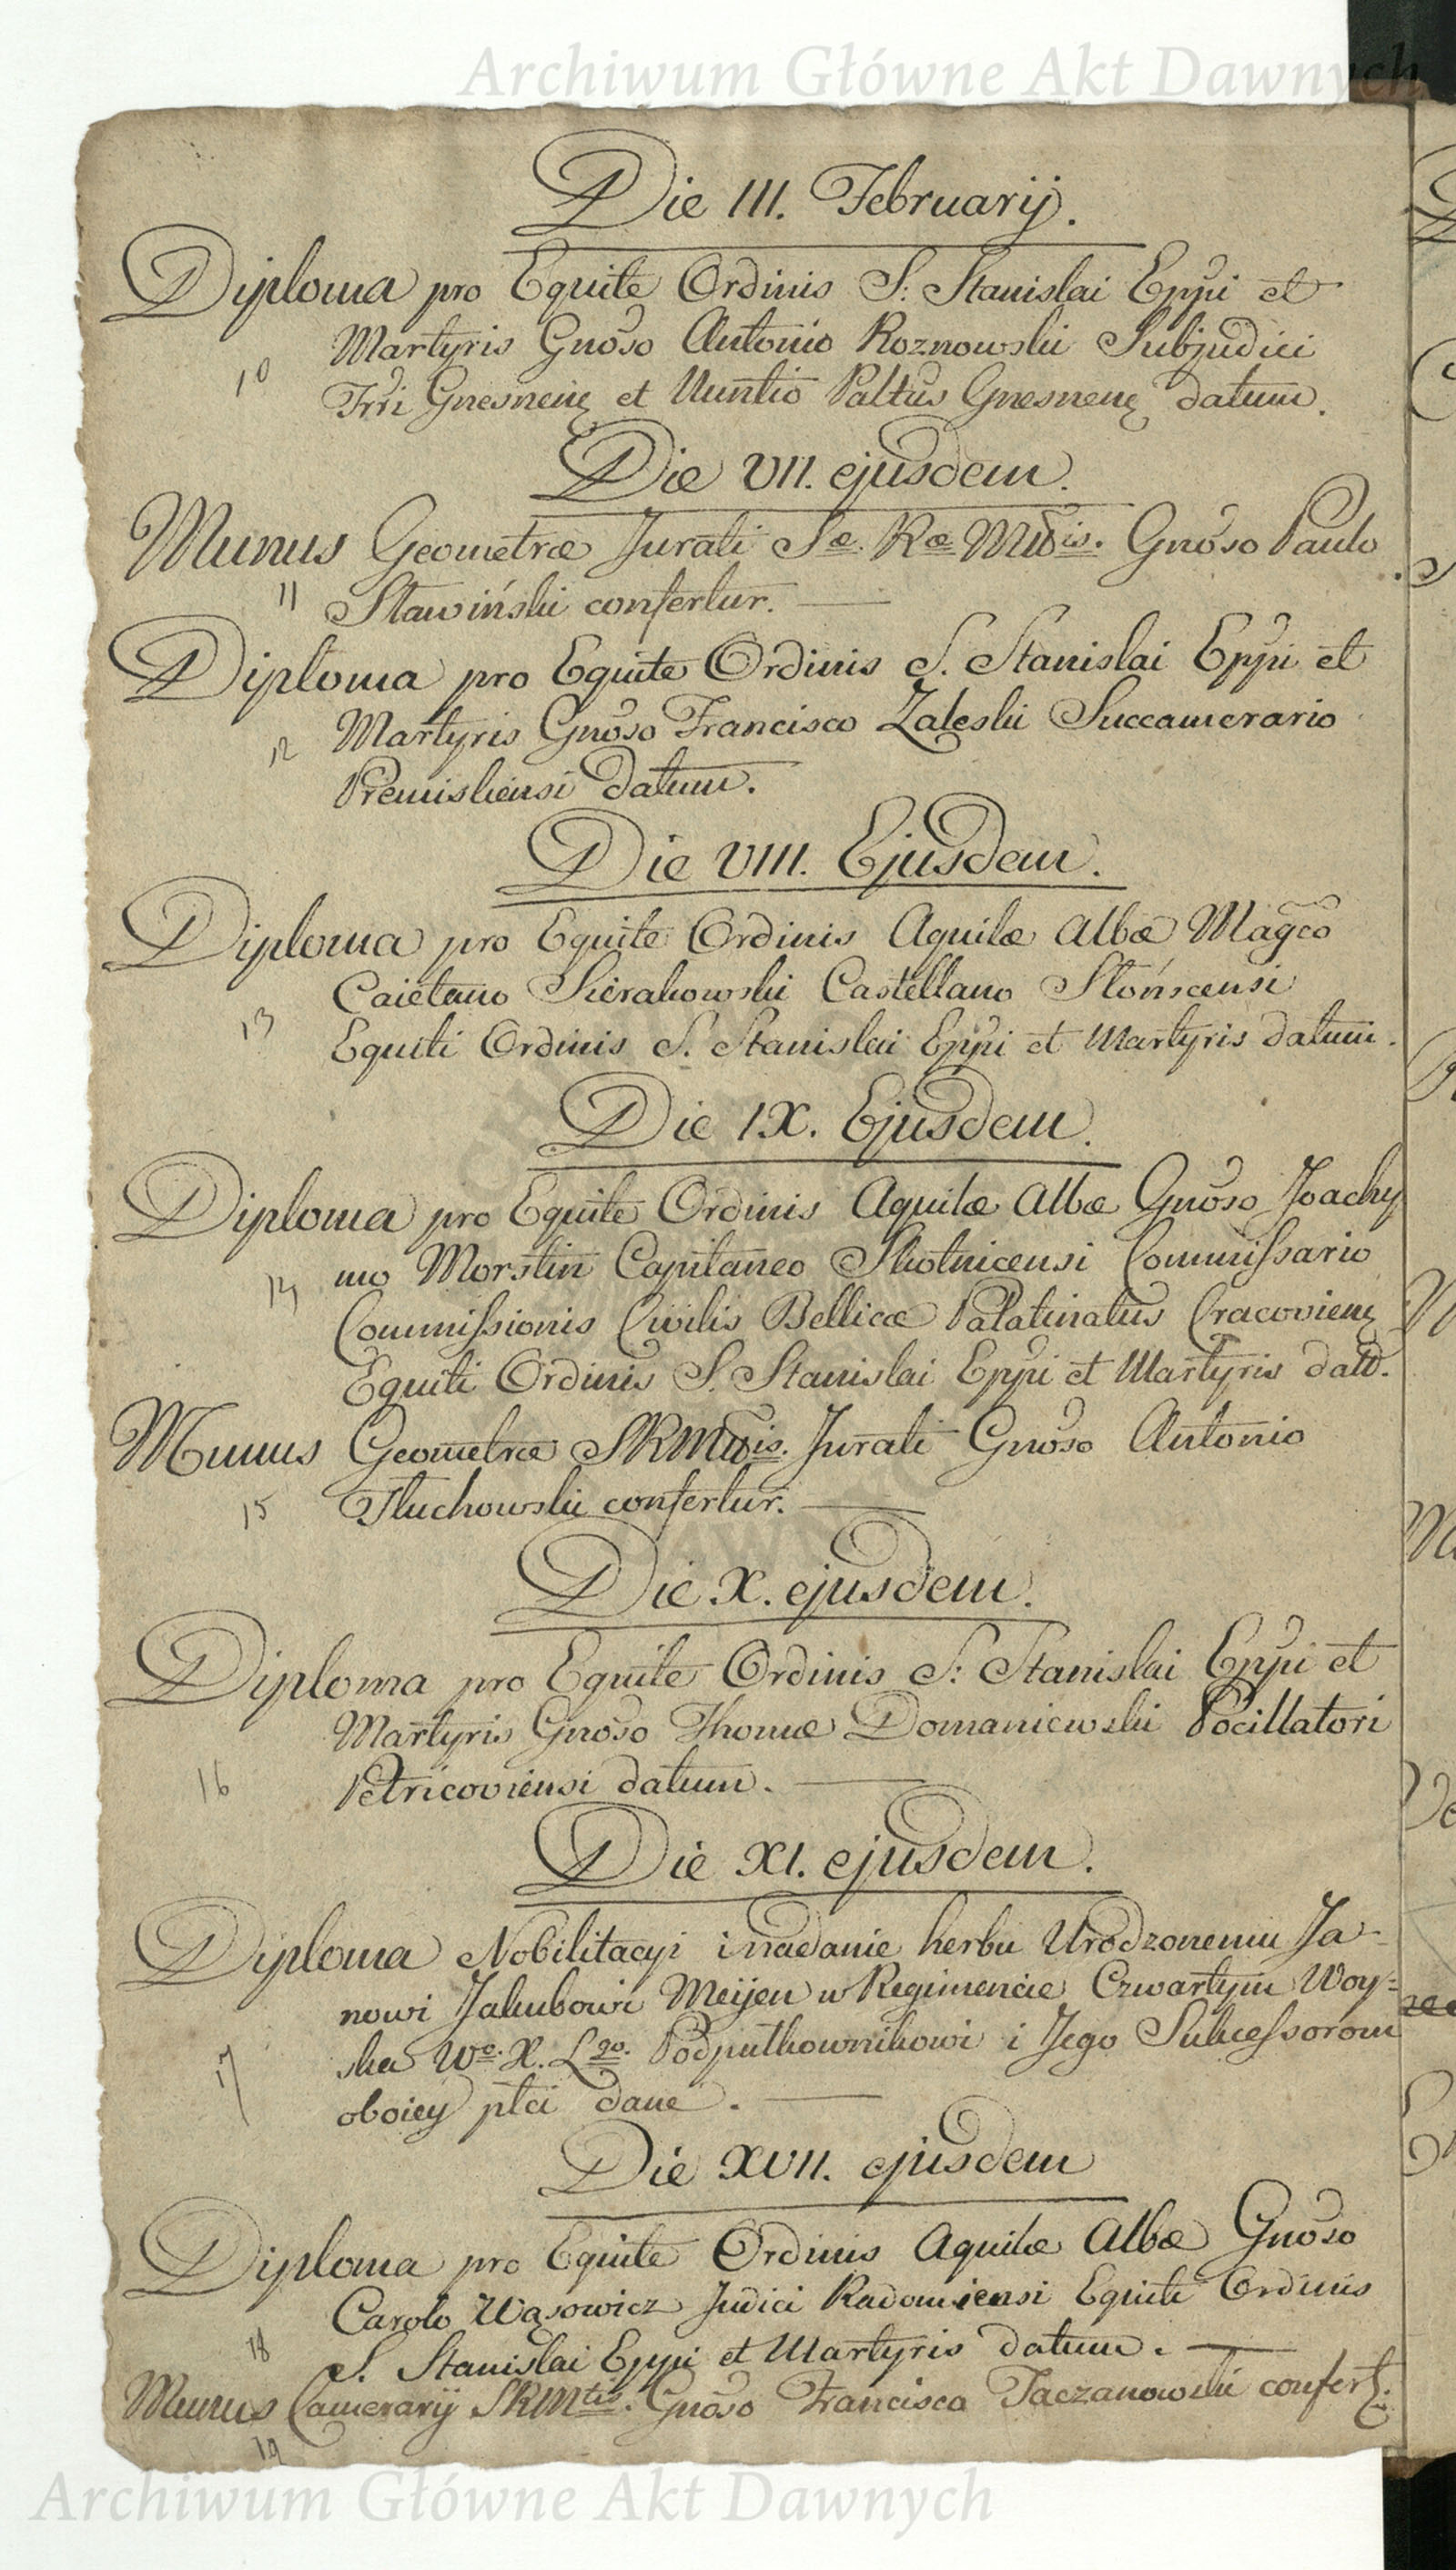 Archiwum Główne Akt Dawnych
Die III. Februarij.
Diploma pro Equite Ordinis S: Stanislai Eppi et
Martyris Gnoso Antonio Roznowski Subjudici
10
Trri Gnesneñ et Nuntio Paltus Gnesneñ datum.
Die VII. ejusdem.
Munus Geometræ Jurati Sæ. Ræ Mtis. Gnoso Paulo
11 Sławiński confertur.
Diploma pro Equite Ordinis S. Stanislai Eppi et
Martyris Gnoso Francisco Zaleski Succamerario
12
Premisliensi datum.
Die VIII. Ejusdem.
Diploma pro Equite Ordinis Aquilæ Albæ Magco
Caietano Sierakowski Castellano Słońscensi
13
Equiti Ordinis S. Stanislai Eppi et Martyris datum.
Die IX. Ejusdem.
Diploma pro Equite Ordinis Aquilæ Albæ Gnoso Joachy
14 mo Morstin Capitaneo Skotnicensi Commissario
Commissionis Civilis Bellicæ Palatinatus Cracovieñ
Equiti Ordinis S. Stanislai Eppi et Martyris datt.
Munus Geometræ SRMtis. Jurati Gnoso Antonio
15 Tłuchowski confertur.
Die X. ejusdem.
Diploma pro Equite Ordinis S: Stanislai Eppi et
Martyris Gnoso Thomæ Domaniewski Pocillatori
16 Petricoviensi datum.
Die XI. ejusdem.
Diploma Nobilitacyi i nadanie herbu Urodzonemu Ja-
nowi Jakubowi Meijen w Regimencie Czwartym Woy=
17 ska Wo. X. Lgo. Podpułkownikowi i Jego Sukcessorom
oboiey płci dane.
Die XVII. ejusdem
Diploma pro Equite Ordinis Aquilæ Albæ Gnoso
Carolo Wąsowicz Judici Radomiensi Equiti Ordinis
18
S. Stanislai Eppi et Martyris datum.
Munus Camerarij SRMtis. Gnoso Francisco Taczanowski confert.
19
Archiwum Główne Akt Dawnych